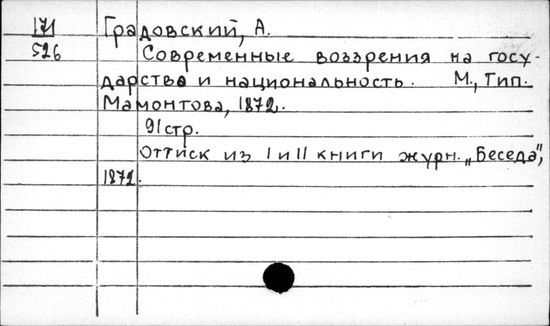 171
526
Градовский, А.
Современные воззрения на госу-
дарства и национальность. М., Тип.
Мамонтова, 1872.
91 стр.
Оттиск из I и II книги журн. „Беседа",
1872.